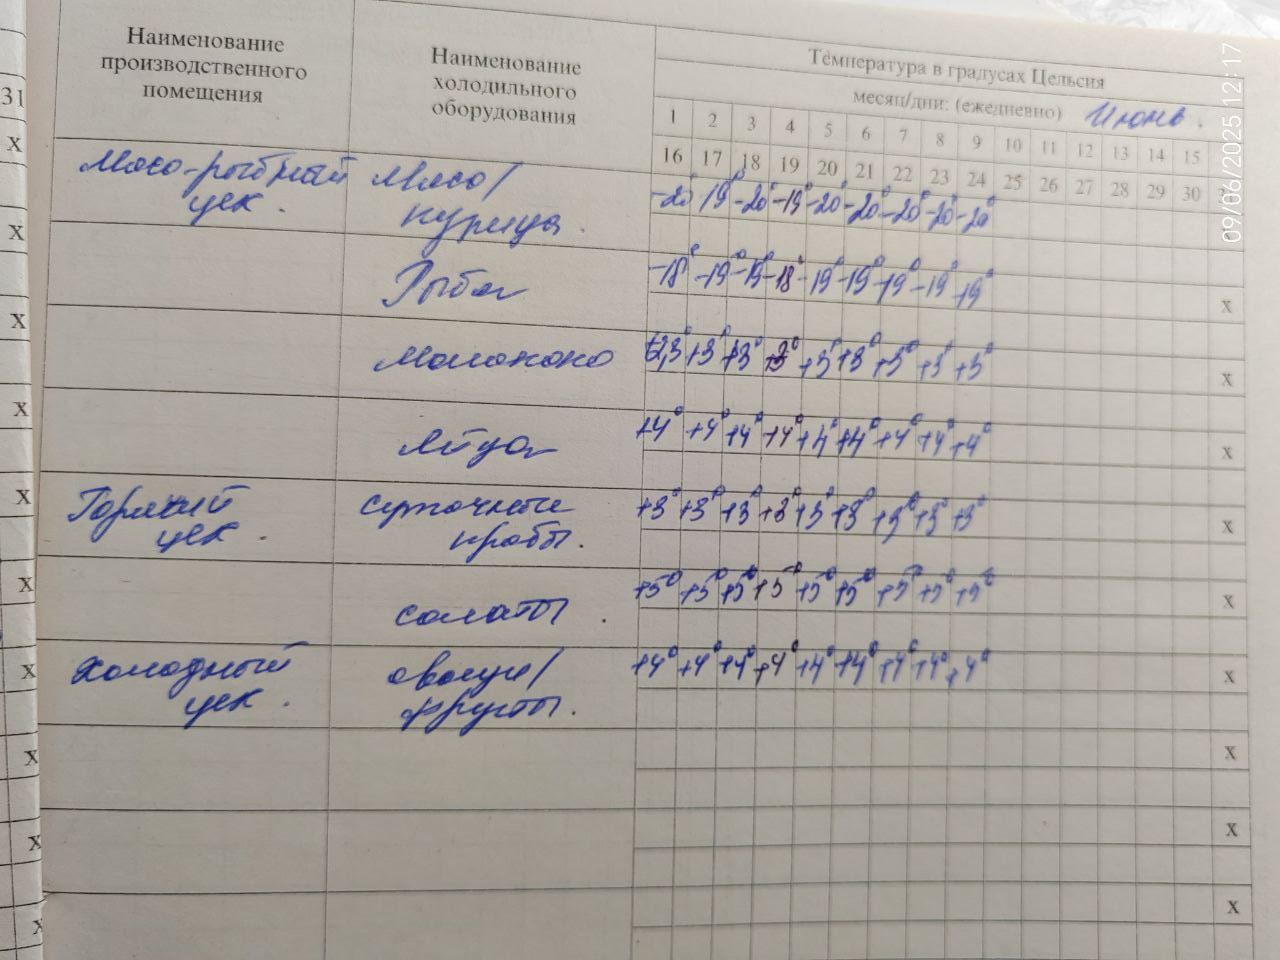 Наименование производственного помещения
Наименование холодильного оборудования
Температура в градусах Цельсия
месяц/дни: (ежедневно) Июнь.
31
1 2 3 4 5 6 7 8 9 10 11 12 13 14 15
16 17 18 19 20 21 22 23 24 25 26 27 28 29 30
Мясо-рыбный цех. Мясо/курица. -20° 19° -20° -19° -20° -20° -20° -20° -20°
х
Рыба -18° -19° -19° -18° -19° -19° -19° -19° -19°
х
молоко +3° +3° +3° +3° +3° +3° +3° +3°
х
Яйца +4° +4° +4° +4° +4° +4° +4° +4° +4°
х
Горячий цех. суточные пробы. +3° +3° +3° +3° +3° +3° +3° +3° +3°
х
салаты. +5° +5° +5° +5° +5° +5° +5° +5° +5°
х
Холодный цех. овощи/фрукты. +4° +4° +4° +4° +4° +4° +4° +4° +4°
х
х
х
х
09/06/2025 12:17